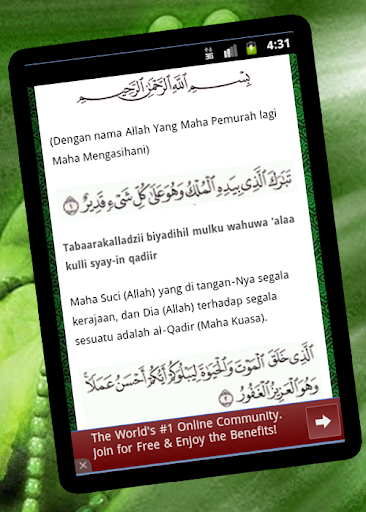 4:31
بِسْمِ اللَّهِ الرَّحْمَٰنِ الرَّحِيمِ
(Dengan nama Allah Yang Maha Pemurah lagi
Maha Mengasihani)
تَبَارَكَ الَّذِي بِيَدِهِ الْمُلْكُ وَهُوَ عَلَىٰ كُلِّ شَيْءٍ قَدِيرٌ ١
Tabaarakalladzii biyadihil mulku wahuwa 'alaa
kulli syay-in qadiir
Maha Suci (Allah) yang di tangan-Nya segala
kerajaan, dan Dia (Allah) terhadap segala
sesuatu adalah al-Qadir (Maha Kuasa).
الَّذِي خَلَقَ الْمَوْتَ وَالْحَيَاةَ لِيَبْلُوَكُمْ أَيُّكُمْ أَحْسَنُ عَمَلًا ۚ
وَهُوَ الْعَزِيزُ الْغَفُورُ ٢
The World's #1 Online Community.
Join for Free & Enjoy the Benefits!